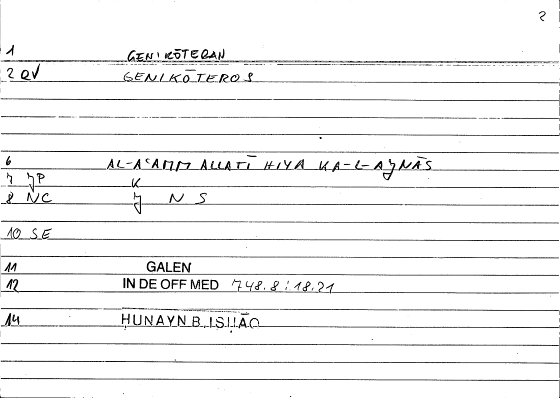 2
1 GENIKŌTERAN
2 QV GENIKŌTEROS
6 AL-AʿAMM ALLATĪ HIYA KA-L-AǦNĀS
7 ǦP K
8 NC Ǧ N S
10 SE
11 GALEN
12 IN DE OFF MED 748.8 : 18.21
14 ḤUNAYN B. ISḤĀQ